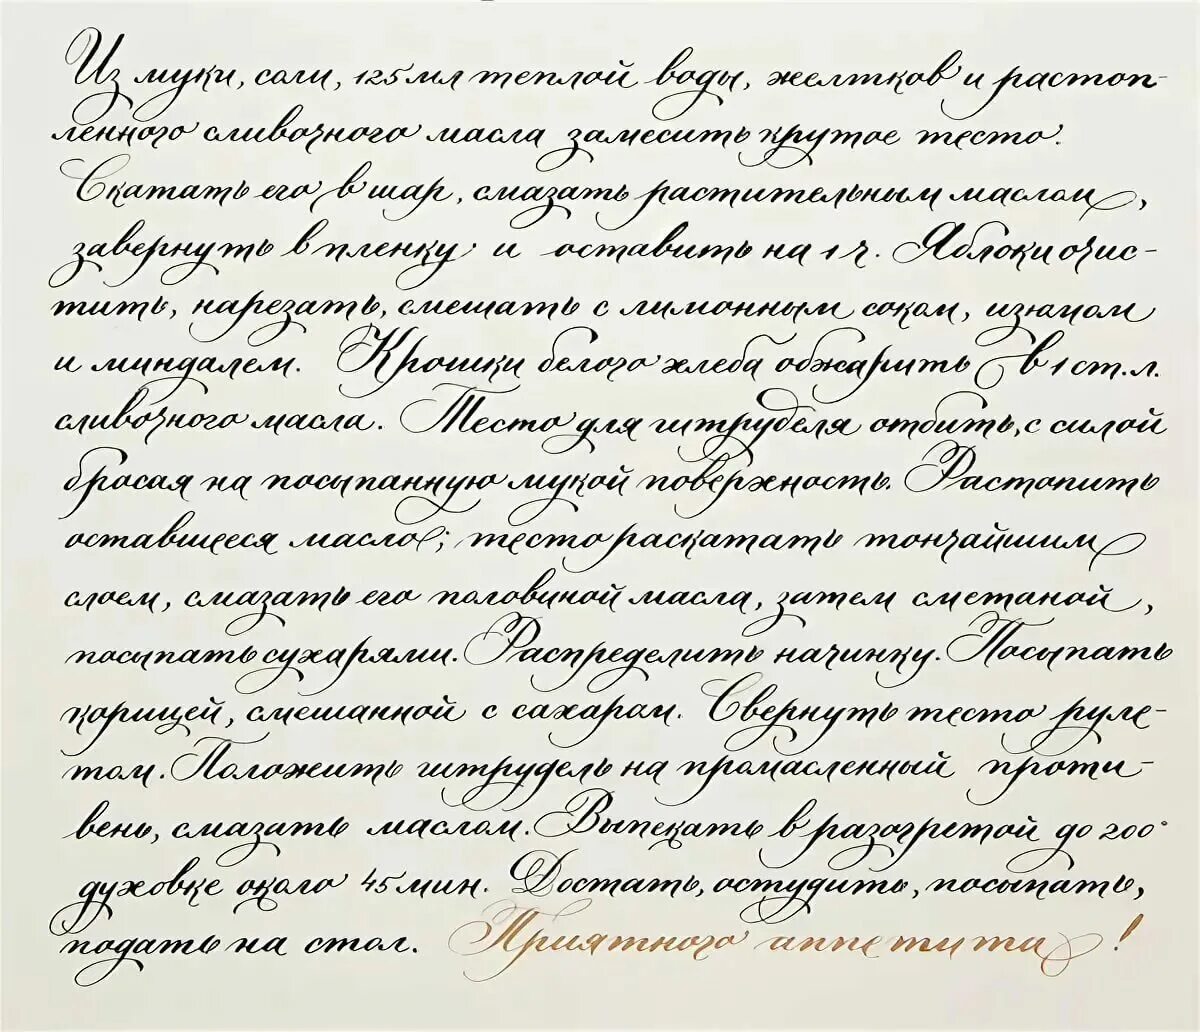 Из муки, соли, 125 мл теплой воды, желтков и растоп-
ленного сливочного масла замесить крутое тесто.
Скатать его в шар, смазать растительным маслом,
завернуть в пленку и оставить на 1 ч. Яблоки очис-
тить, нарезать, смешать с лимонным соком, изюмом
и миндалем. Крошки белого хлеба обжарить в 1 ст. л.
сливочного масла. Тесто для штруделя отбить, с силой
бросая на посыпанную мукой поверхность. Растопить
оставшееся масло; тесто раскатать тончайшим
слоем, смазать его половиной масла, затем сметаной,
посыпать сухарями. Распределить начинку. Посыпать
корицей, смешанной с сахаром. Свернуть тесто руле-
том. Положить штрудель на промасленный проти-
вень, смазать маслом. Выпекать в разогретой до 200°
духовке около 45 мин. Достать, остудить, посыпать,
подать на стол. Приятного аппетита!